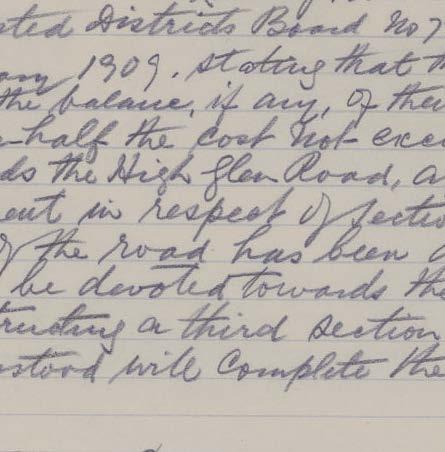 sted Districts Board No 7
ary 1909, stating that th
the balance, if any, of the
-half the cost not exce
ds the High Glen Road, a
ent in respect of Sectio
of the road has been
be devoted towards the
tructing a third section
stood will complete the